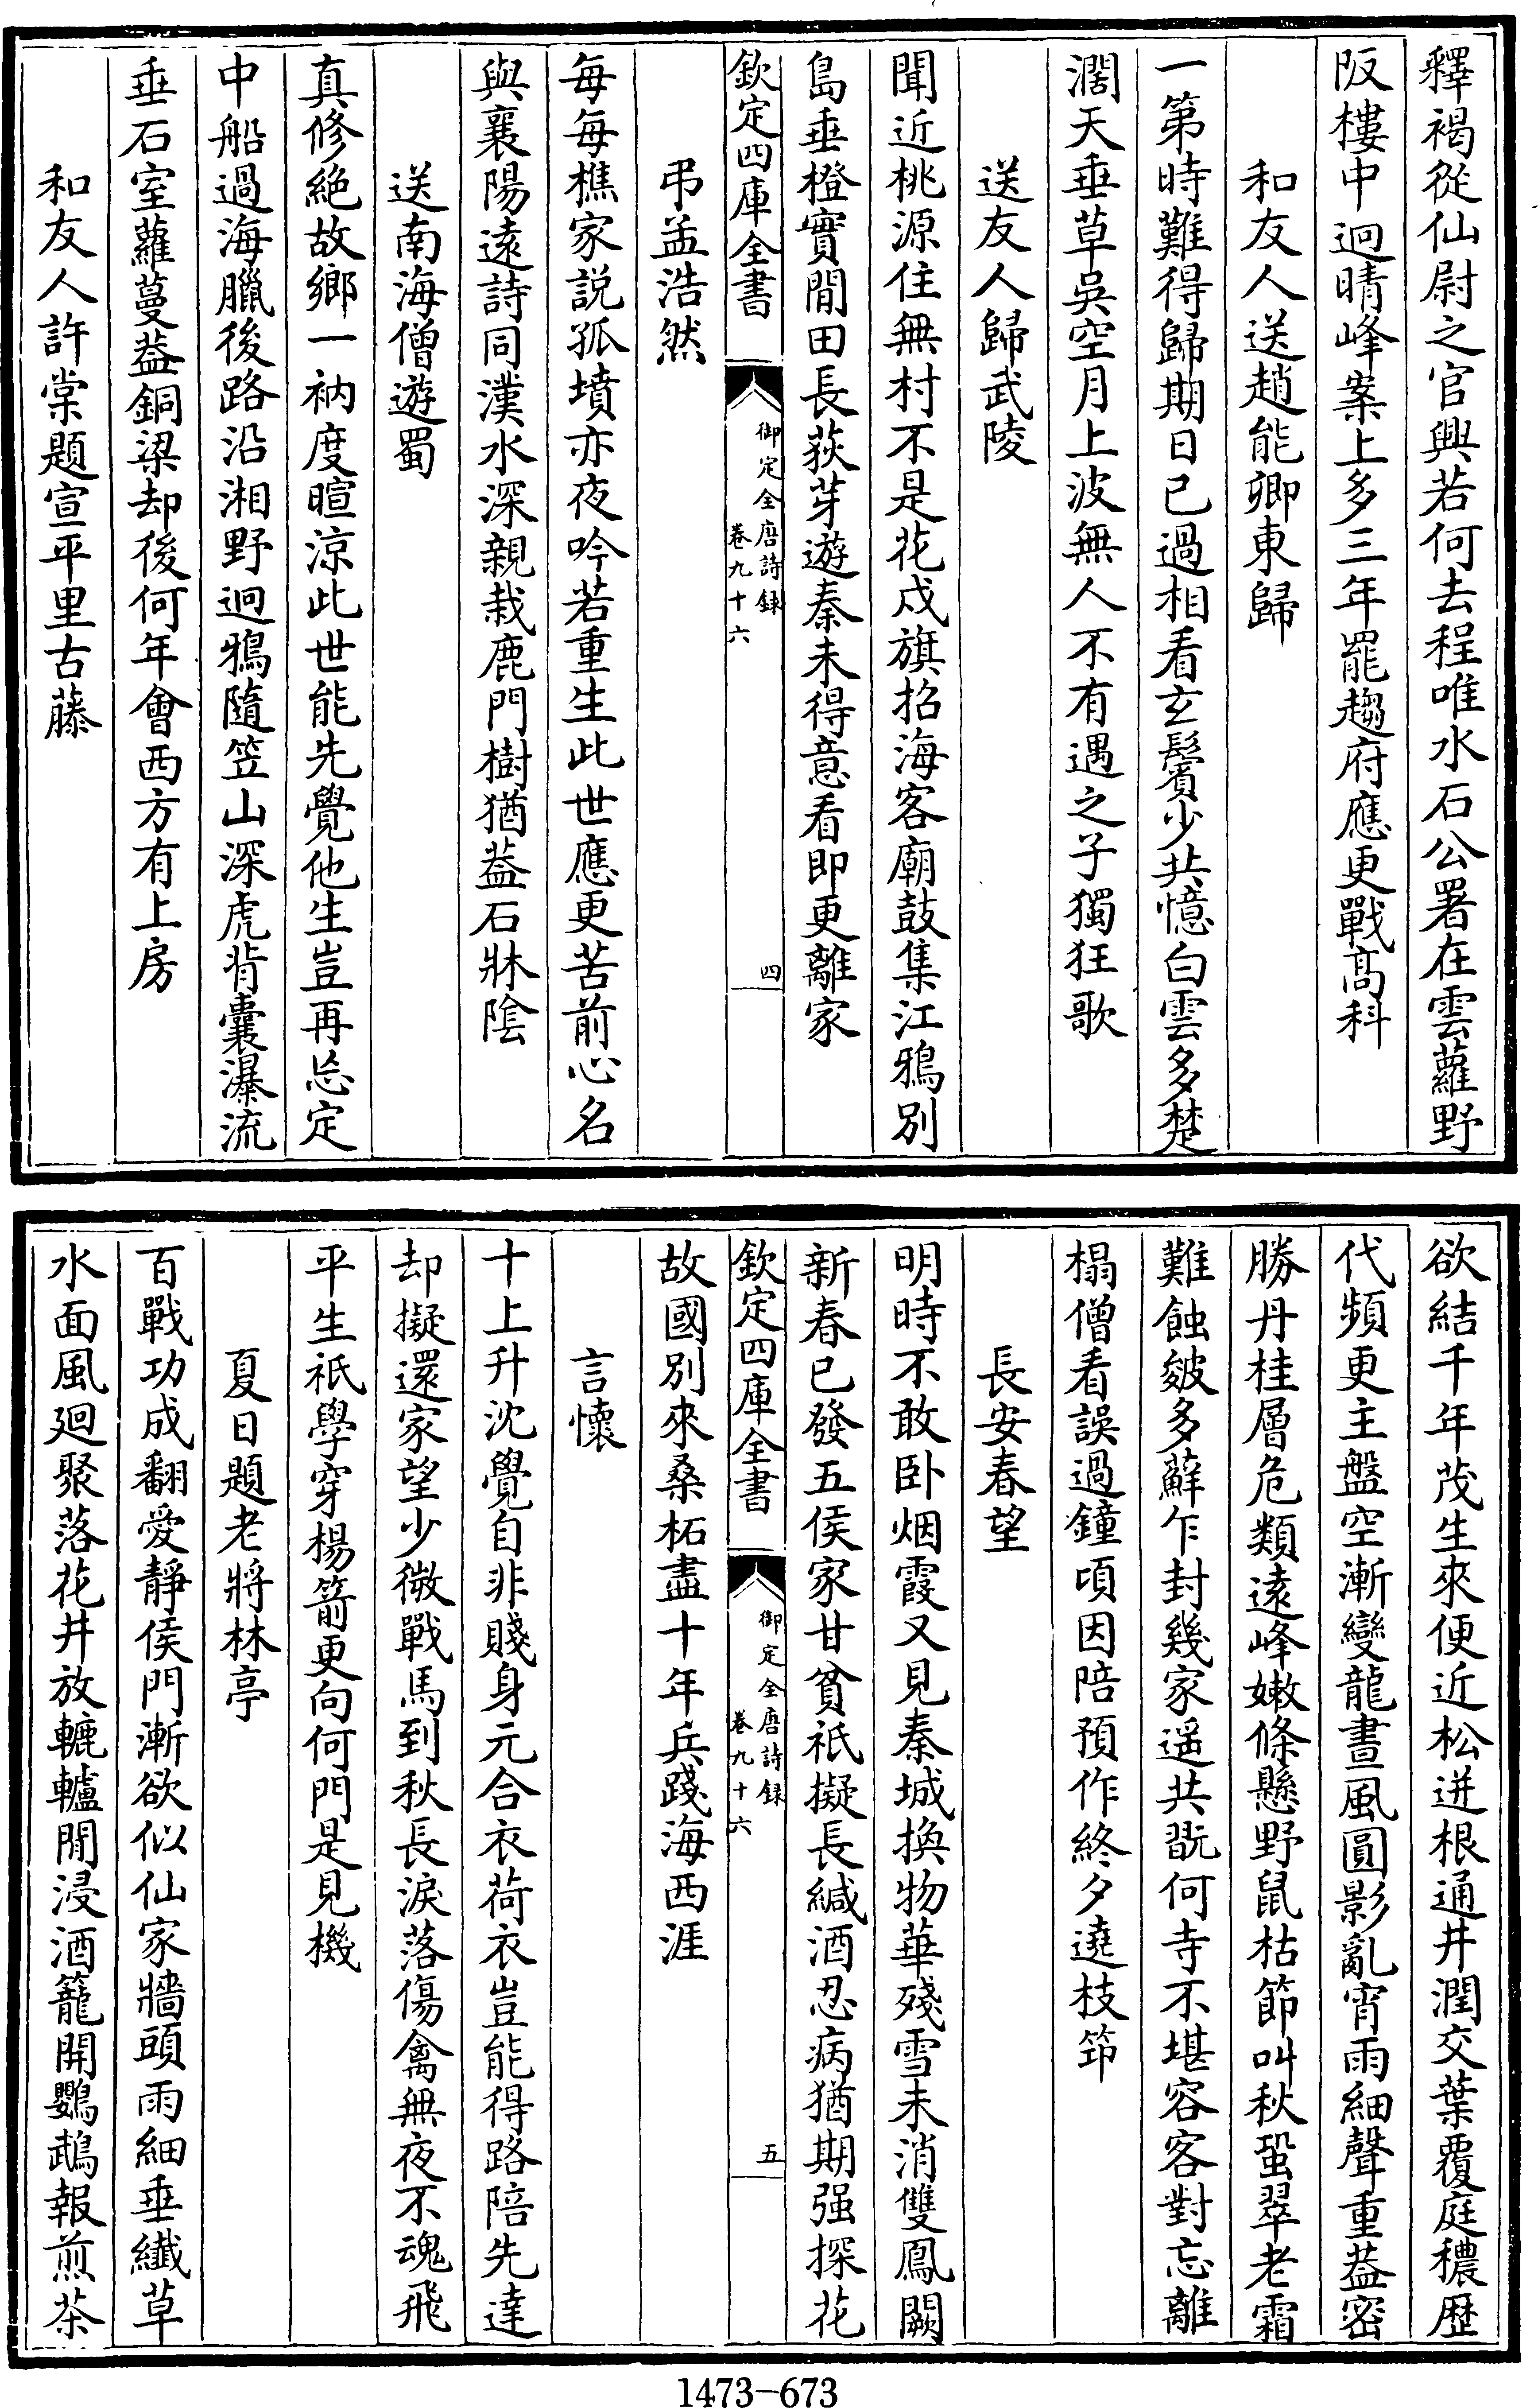 釋褐從仙尉之官興若何去程唯水石公署在雲蘿野
阪樓中迥晴峰案上多三年罷趨府應更戰髙科
和友人送趙能卿東歸
一第時難得歸期日已過相看玄鬢少共憶白雲多楚
濶天垂草吳空月上波無人不有遇之子獨狂歌
送友人歸武陵
聞近桃源住無村不是花戍旗招海客廟鼓集江鴉別
島垂橙實閒田長荻芽遊秦未得意看即更離家
欽定四庫全書
御定全唐詩録
卷九十六
四
弔孟浩然
每每樵家説孤墳亦夜吟若重生此世應更苦前心名
與襄陽遠詩同漢水深親栽鹿門樹猶葢石牀陰
送南海僧遊蜀
真修絶故鄉一衲度暄涼此世能先覺他生豈再忘定
中船過海臘後路沿湘野迥鴉隨笠山深虎背囊瀑流
垂石室蘿蔓葢銅梁却後何年會西方有上房
和友人許棠題宣平里古藤
欲結千年茂生來便近松迸根通井潤交葉覆庭穠歴
代頻更主盤空漸變龍晝風圓影亂宵雨細聲重葢密
勝丹桂層危類遠峰嫩條懸野鼠枯節叫秋蛩翠老霜
難蝕皴多蘚乍封幾家遥共翫何寺不堪容客對忘離
榻僧看誤過鐘頃因陪預作終夕遶枝筇
長安春望
明時不敢卧烟霞又見秦城換物華殘雪未消雙鳳闕
新春已發五侯家甘貧祇擬長緘酒忍病猶期强探花
欽定四庫全書
御定全唐詩録
卷九十六
五
故國別來桑柘盡十年兵踐海西涯
言懷
十上升沈覺自非賤身元合衣荷衣豈能得路陪先達
却擬還家望少微戰馬到秋長淚落傷禽無夜不魂飛
平生祇學穿楊箭更向何門是見機
夏日題老將林亭
百戰功成翻愛靜侯門漸欲似仙家牆頭雨細垂纖草
水面風廻聚落花井放轆轤閒浸酒籠開鸚鵡報煎茶
1473-673